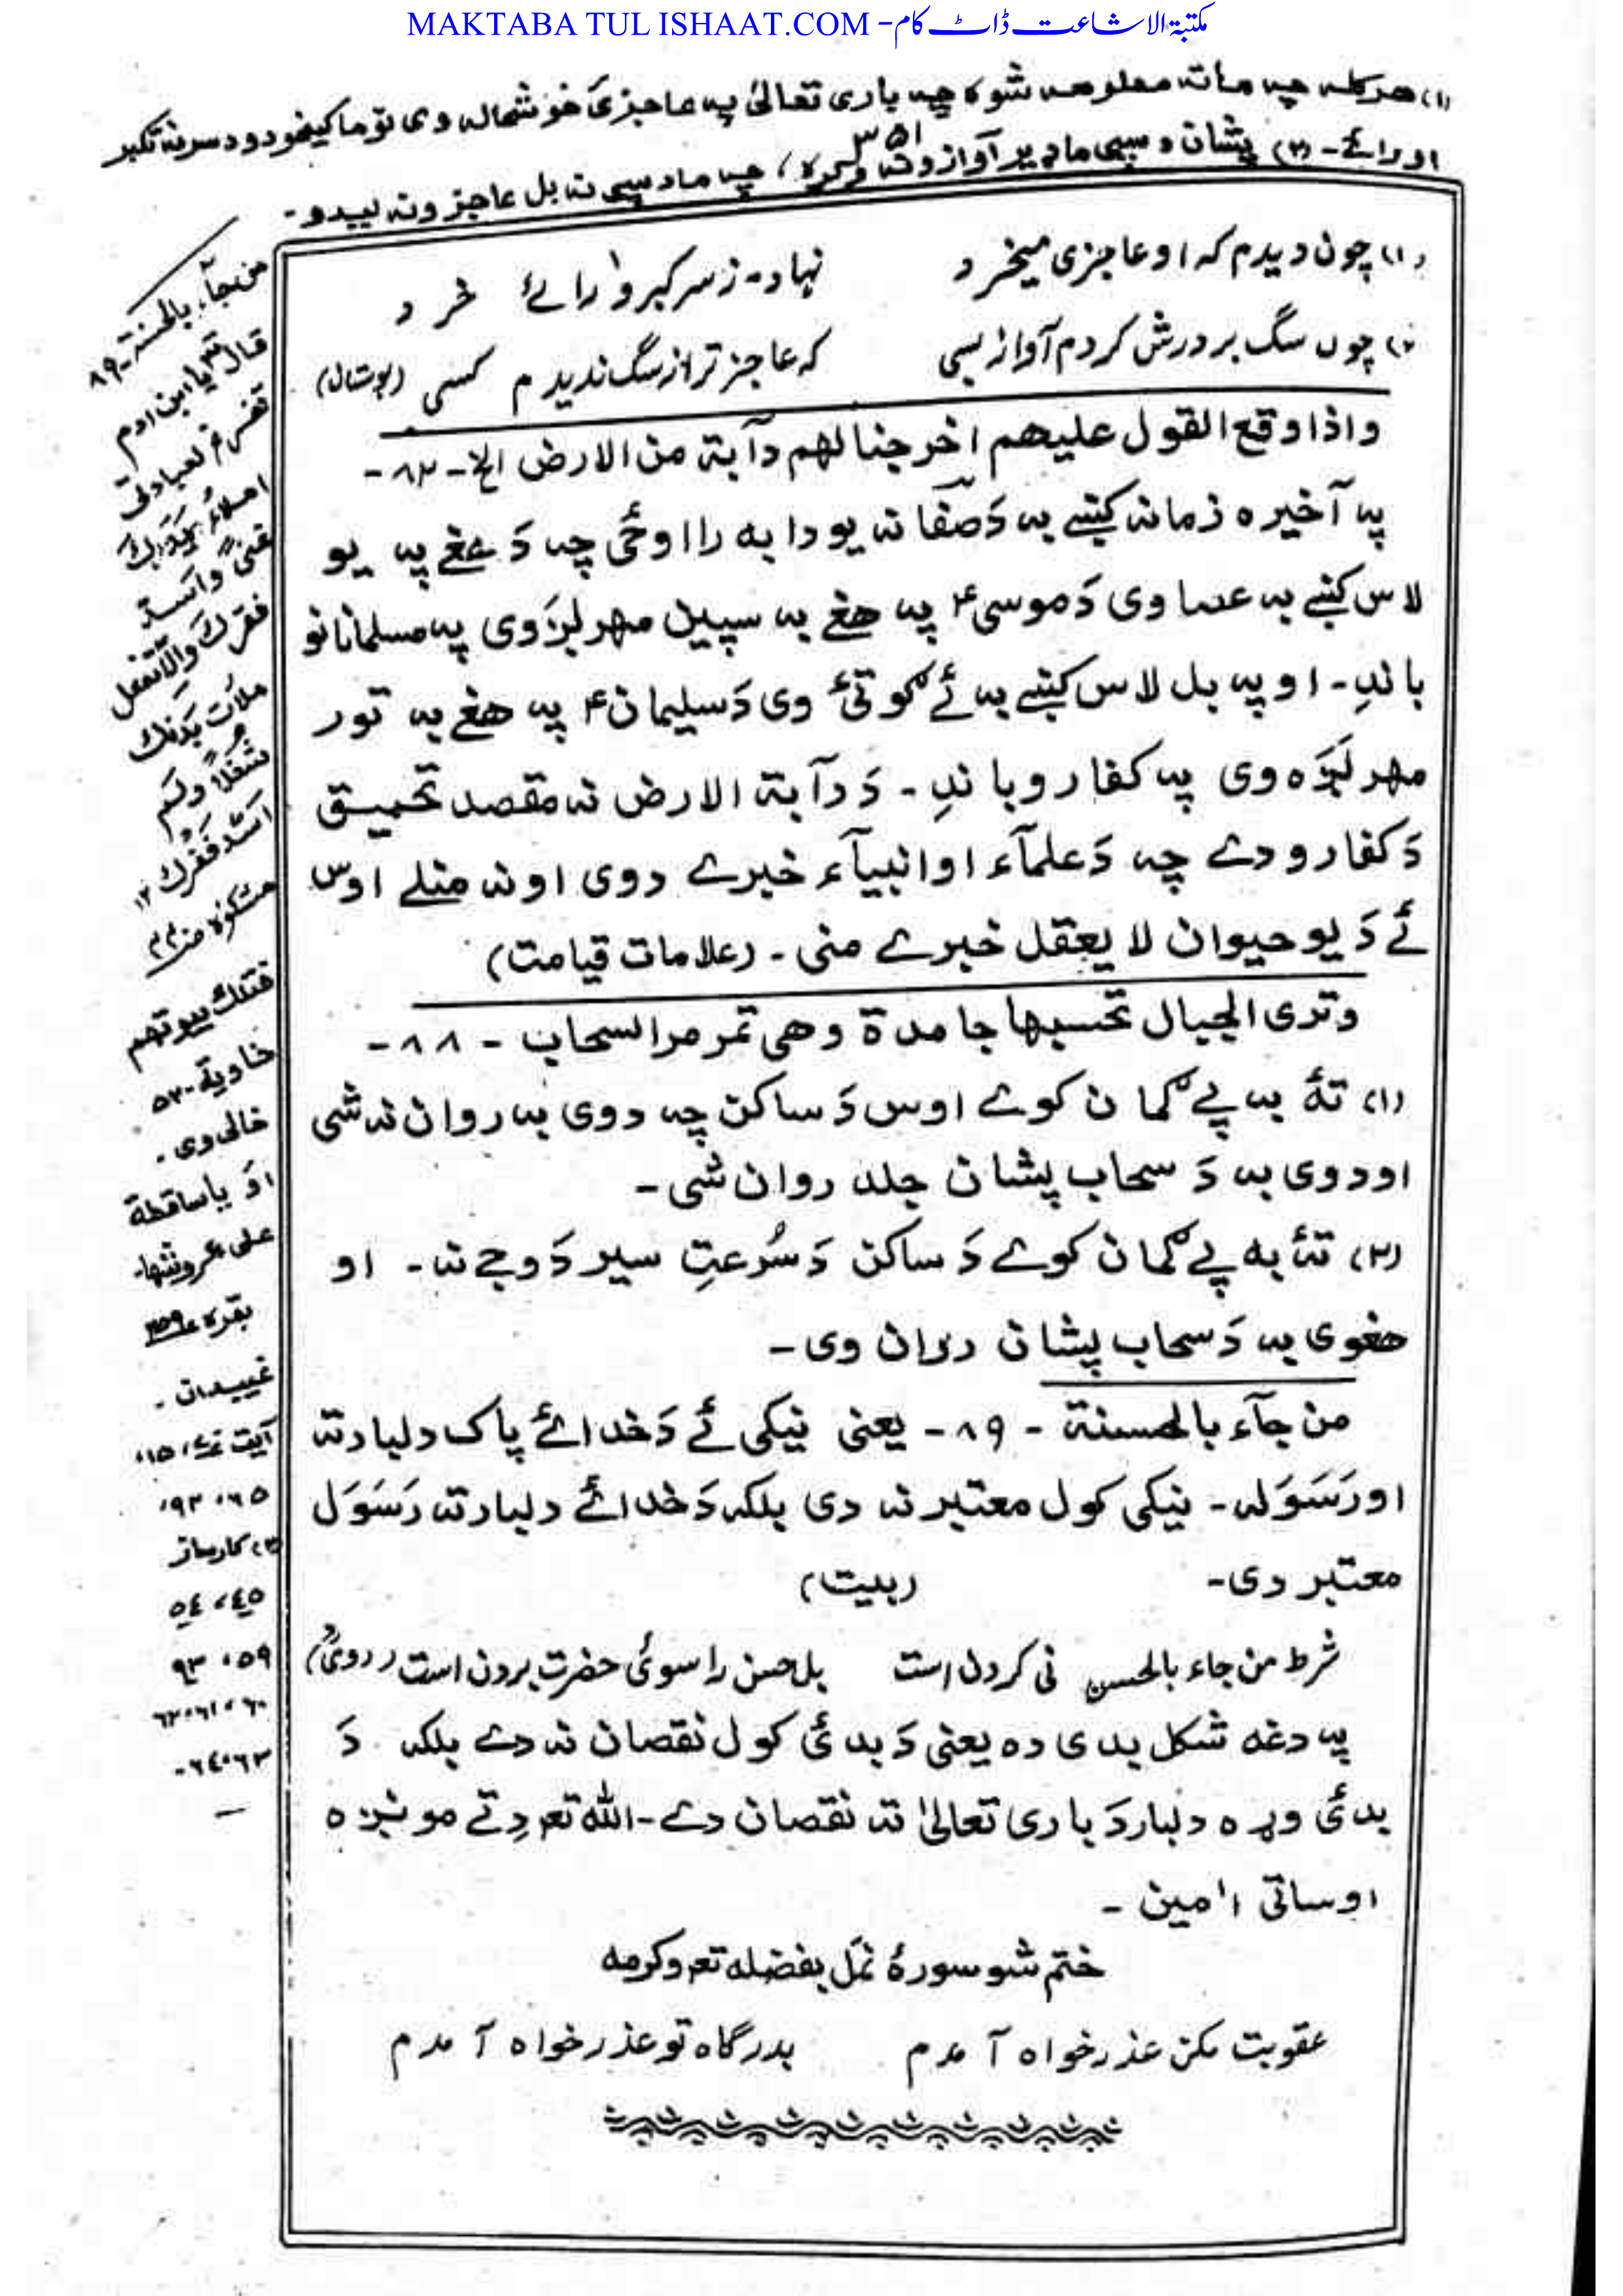 MAKTABA TUL ISHAAT.COM - مکتبۃ الاشاعت ڈاٹ کام
(۱) هرکله چه ماته معلومه شوه چه باری تعالیٰ په عاجزئ خوشحاله وی نو ما کیخودو د سر نه تکبر
او رائے - (۲) پشان د سپی ما دیر آوازونه وکړه، چه ما د سپی نه بل عاجز ونه لیدو -
۳۵۱
(۱) چون دیدم که او عاجزی میخرد نهادم ز سر کبر و رائے خرد
(۲) چوں سگ بر درش کردم آواز بسی که عاجز تر از سگ ندیدم کسی (بوستان)
واذا وقع القول علیهم اخرجنا لهم دآبة من الارض الخ - ۸۲ -
په آخیره زمانه کښے به دَ صفا نه یو دابه را اوځی چه دَ هغے په یو
لاس کښے به عصا وی دَ موسیٰ ؑ په هغے به سپین مهر لږوی په مسلمانانو
باندِ - او په بل لاس کښے به ئے ګوتئ وی دَ سلیمان ؑ په هغے به تور
مهر لږه وی په کفارو باندِ - دَ دآبة الارض نه مقصد تحمیق
دَ کفارو دے چه دَ علمآء او انبیآء خبرے دوی اونه منلے اوس
ئے دَ یو حیوان لا یعقل خبرے منی - (علامات قیامت)
وتری الجبال تحسبها جامدة وهی تمر مر السحاب - ۸۸ -
(۱) تهٔ به پے ګمان کوے اوس دَ ساکن چه دوی به روان نه شی
او دوی به دَ سحاب پشان جلد روان شی -
(۲) تهٔ به پے ګمان کوے دَ ساکن دَ سُرعتِ سیر دَ وجے نه - او
هغوی به دَ سحاب پشان روان وی -
من جآء بالحسنة - ۸۹ - یعنی نیکی ئے دَ خدائے پاک دربار ته
اورَسَوَله - نیکی کول معتبر نه دی بلکه دَ خدائے دربار ته رَسَوَل
معتبر دی - (بیت)
شرط من جاء بالحسن نی کردن است بل حسن را سوئی حضرت بردن است (رومیؒ)
په دغه شکل بدی ده یعنی دَ بدئ کول نقصان نه دے بلکه دَ
بدئ وړه دربار دَ باری تعالیٰ ته نقصان دے - الله تعہ دِتے مونږه
اوساتی اٰمین -
ختم شو سورهٔ نمل بفضله تعہ وکرمه
عقوبت مکن عذر خواه آمدم بدرگاه تو عذر خواه آمدم
من جآء بالحسنة - ۸۹
قال تعہ یا ابن ادم
تفرغ لعبادتی
املاء صدرک
غنی واسد
فقرک والا تفعل
ملأت یدک
شغلا ولم
اسد فقرک ۱۲
مشکوٰة
فتلک بیوتهم
خاویة - ۵۲
خالی وی .
او یا ساقطة
علی عروشها -
بقره ۲۵۹
غیبدان -
آیت
۶۵، ۹۳،
کارساز
۵۴، ۴۵
۵۹، ۹۳
۶۰، ۶۱، ۶۲
۶۳، ۶۴ -